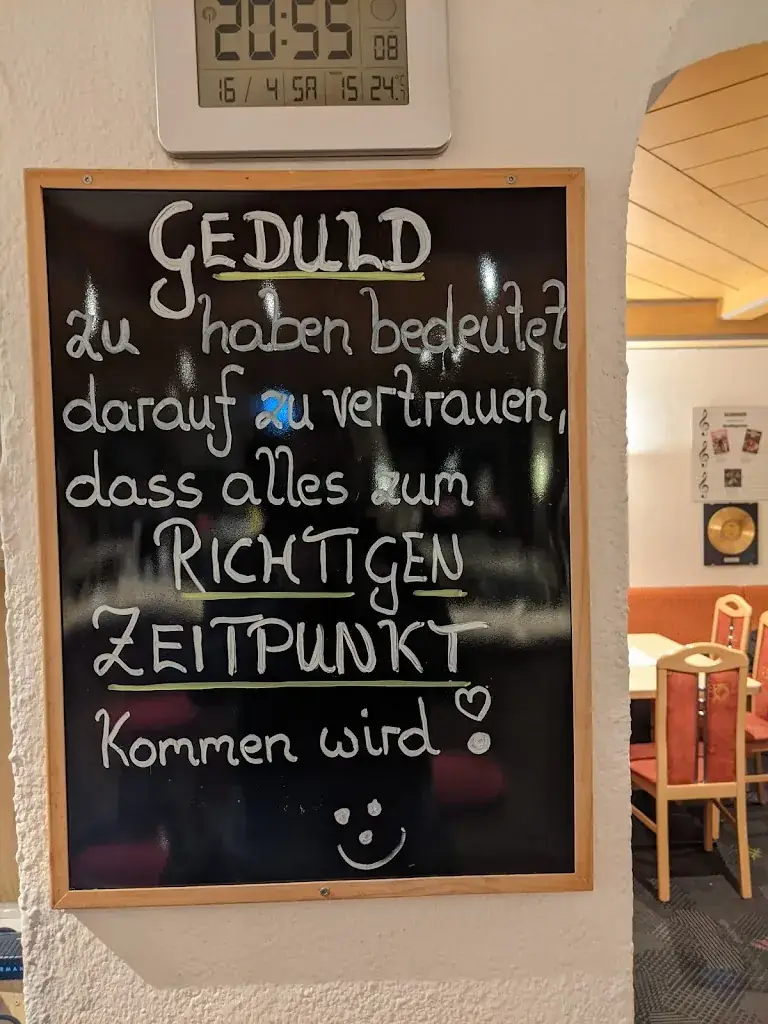 20:55 08
16 / 4 SA 15 24.
GEDULD
zu haben bedeutet
darauf zu vertrauen,
dass alles zum
RICHTIGEN
ZEITPUNKT
Kommen wird